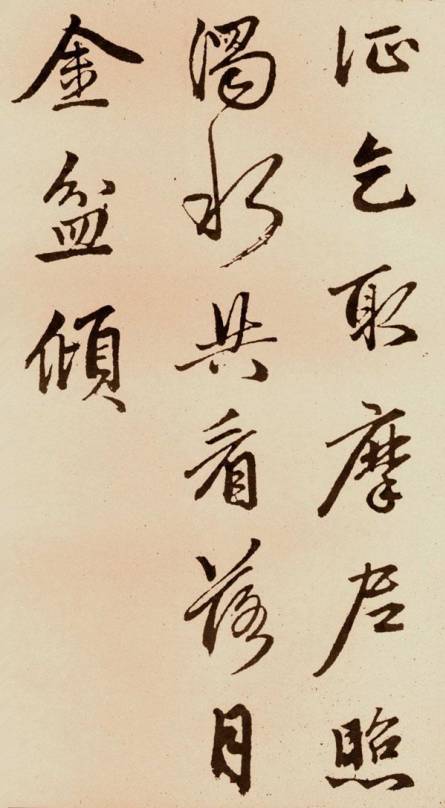 证乞取摩尼照
濁水共看落月
金盆傾